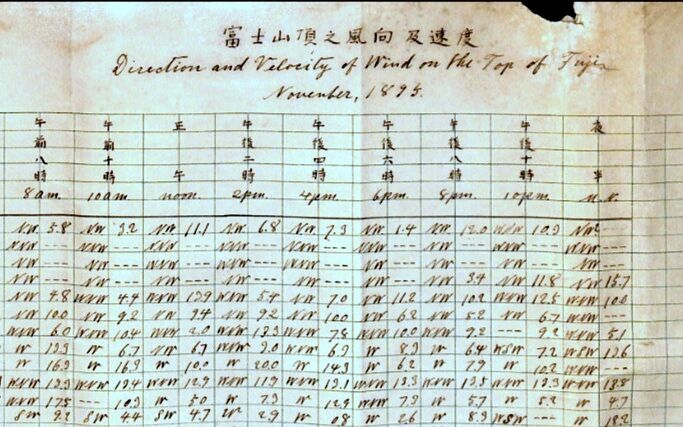 富士山頂之風向及速度
Direction and Velocity of Wind on the Top of Fuji
November, 1895.
午前八時 午前十時 正午 午後二時 午後四時 午後六時 午後八時 午後十時 夜半
8 am. 10 am. noon. 2 pm. 4 pm. 6 pm. 8 pm. 10 pm.
NW 5.8 NW 3.2 NW 11.1 NW 6.8 NW 7.3 NW 1.4 NW 12.0 10.9 NW
--- --- --- --- --- --- --- --- ---
--- --- --- --- --- --- --- --- ---
NW --- NW --- NW --- NW --- NW --- NW --- NW 3.4 NW 11.8 NW 15.7
NW 4.8 WNW 4.4 WNW WNW 5.4 NW 7.0 NW 11.2 NW 10.2 WNW 12.5 WNW 10.0
NW 10.0 NW 9.2 NW 9.4 NW 9.2 NW 10.0 NW 6.2 NW 5.2 NW 6.7 WNW ---
WNW 6.0 WNW 10.4 WNW 2.0 WNW WNW 7.8 WNW 10.0 WNW 9.2 --- 9.2 WNW 5.1
W W 6.7 NW WNW WNW 6.9 W 8.9 W 6.4 WSW 7.2 WSW 12.6
W 16.9 W 16.9 W 10.0 W 20.0 W 14.3 W 6.2 W 7.9 W 10.2 WNW ---
WNW WNW WNW 12.9 WNW 11.9 WNW WNW WNW WNW WNW
WNW 17.5 --- 10.3 W 5.0 W 7.3 W 12.9 WNW 7.9 W 5.7 W 5.2 W 4.7
SW 9.2 SW 4.4 SW 4.7 W 2.9 W 0.8 W 2.6 W 8.9 WSW --- W 18.2